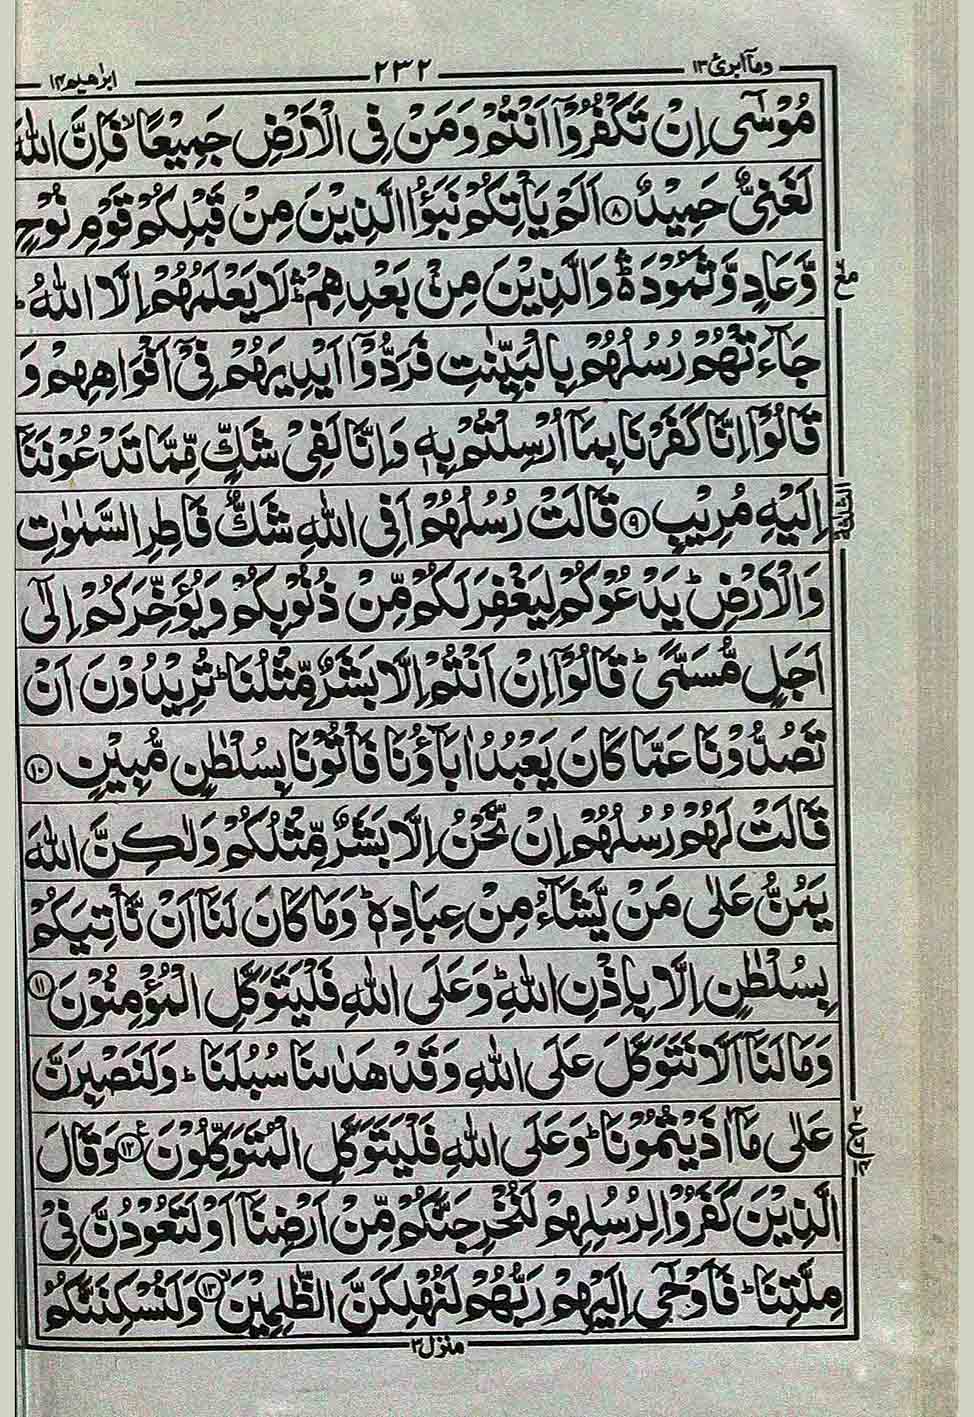 وما ابرئ ۱۳ ۲۳۲ ابراهیم ۱۴
مُوْسٰۤى اِنْ تَكْفُرُوْۤا اَنْتُمْ وَمَنْ فِى الْاَرْضِ جَمِيْعًا ۙ فَاِنَّ اللّٰهَ
لَغَنِىٌّ حَمِيْدٌ ﴿۸﴾ اَلَمْ يَاْتِكُمْ نَبَؤُا الَّذِيْنَ مِنْ قَبْلِكُمْ قَوْمِ نُوْحٍ
وَّعَادٍ وَّثَمُوْدَ ۛ وَالَّذِيْنَ مِنْۢ بَعْدِهِمْ ۛ لَا يَعْلَمُهُمْ اِلَّا اللّٰهُ ؕ
جَآءَتْهُمْ رُسُلُهُمْ بِالْبَيِّنٰتِ فَرَدُّوْۤا اَيْدِيَهُمْ فِىْۤ اَفْوَاهِهِمْ وَ
قَالُوْۤا اِنَّا كَفَرْنَا بِمَاۤ اُرْسِلْتُمْ بِهٖ وَاِنَّا لَفِىْ شَكٍّ مِّمَّا تَدْعُوْنَنَاۤ
اِلَيْهِ مُرِيْبٍ ﴿۹﴾ قَالَتْ رُسُلُهُمْ اَفِى اللّٰهِ شَكٌّ فَاطِرِ السَّمٰوٰتِ
وَالْاَرْضِ ؕ يَدْعُوْكُمْ لِيَغْفِرَ لَكُمْ مِّنْ ذُنُوْبِكُمْ وَيُؤَخِّرَكُمْ اِلٰٓى
اَجَلٍ مُّسَمًّى ؕ قَالُوْۤا اِنْ اَنْتُمْ اِلَّا بَشَرٌ مِّثْلُنَا ؕ تُرِيْدُوْنَ اَنْ
تَصُدُّوْنَا عَمَّا كَانَ يَعْبُدُ اٰبَآؤُنَا فَاْتُوْنَا بِسُلْطٰنٍ مُّبِيْنٍ ﴿۱۰﴾
قَالَتْ لَهُمْ رُسُلُهُمْ اِنْ نَّحْنُ اِلَّا بَشَرٌ مِّثْلُكُمْ وَلٰكِنَّ اللّٰهَ
يَمُنُّ عَلٰى مَنْ يَّشَآءُ مِنْ عِبَادِهٖ ؕ وَمَا كَانَ لَنَاۤ اَنْ نَّاْتِيَكُمْ
بِسُلْطٰنٍ اِلَّا بِاِذْنِ اللّٰهِ ؕ وَعَلَى اللّٰهِ فَلْيَتَوَكَّلِ الْمُؤْمِنُوْنَ ﴿۱۱﴾
وَمَا لَنَاۤ اَلَّا نَتَوَكَّلَ عَلَى اللّٰهِ وَقَدْ هَدٰىنَا سُبُلَنَا ؕ وَلَنَصْبِرَنَّ
عَلٰى مَاۤ اٰذَيْتُمُوْنَا ؕ وَعَلَى اللّٰهِ فَلْيَتَوَكَّلِ الْمُتَوَكِّلُوْنَ ﴿۱۲﴾ وَقَالَ
الَّذِيْنَ كَفَرُوْا لِرُسُلِهِمْ لَنُخْرِجَنَّكُمْ مِّنْ اَرْضِنَاۤ اَوْ لَتَعُوْدُنَّ فِىْ
مِلَّتِنَا ؕ فَاَوْحٰۤى اِلَيْهِمْ رَبُّهُمْ لَنُهْلِكَنَّ الظّٰلِمِيْنَ ۙ ﴿۱۳﴾ وَلَنُسْكِنَنَّكُمُ
منزل ۳